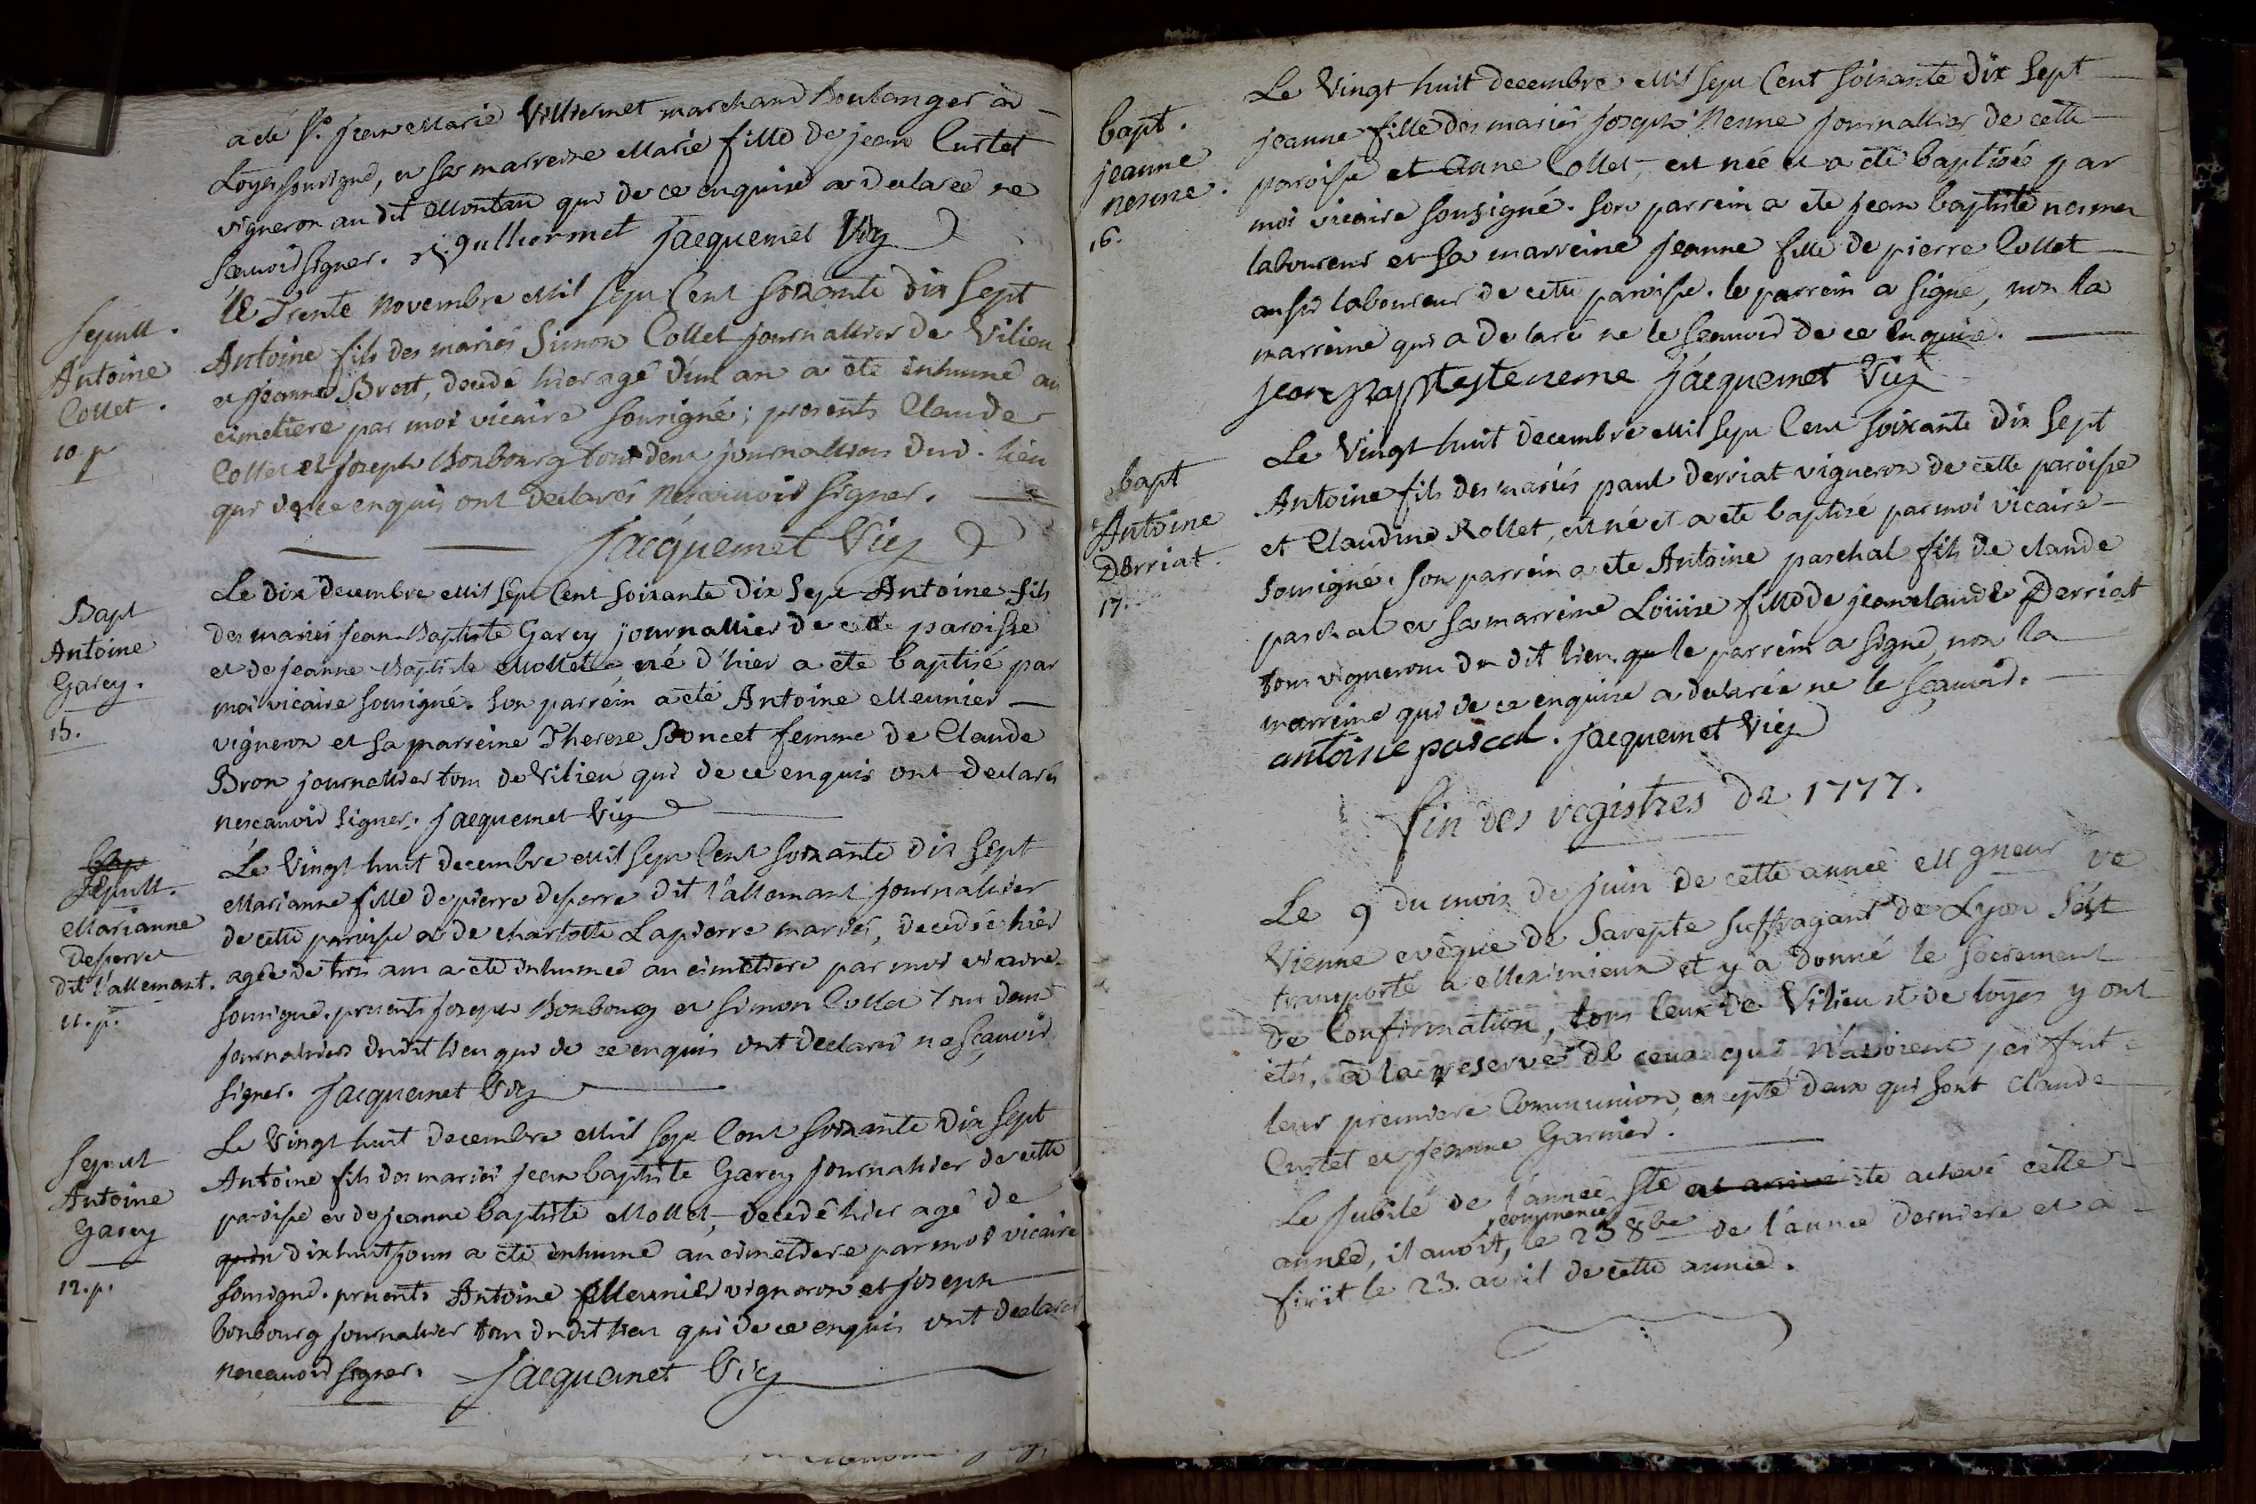 a été Sr. jean Marie Villiermet marchand boulanger à
Loyes soussigné, et sa marreine Marie fille de jean Curtet
vigneron au dit Montau qui de ce enquise a declareé ne
scavoir signer. jacquemet Vic
Sepult.
Antoine
Collet.
10. p
le Trente Novembre Mil sept Cent Soixante dix Sept
Antoine fils des mariés Simon Collet journallier de Vilieu
et jeanne Brost, decedé hier agé d'un an a été inhumé au
cimetiere par moi vicaire sousigné; presents Claude
Collet et joseph Bonbourg tous deux journalliers dud. lieu
qui de ce enquis ont declarés ne scauvoir signer.
jacquemet Vic
Bapt
Antoine
Garcy.
15.
Le dix decembre Mil sept Cent soixante dix sept Antoine fils
des mariés jean Baptiste Garcy journallier de cette paroisse
et de jeanne Baptiste Mollet, né d'hier a eté baptisé par
moi vicaire sousigné. son parrein a eté Antoine Meunier
vigneron et sa marreine Therese Poncet femme de Claude
Bron journalier tous de Vilieu qui de ce enquis ont declarés
ne scauvoir signer. jacquemet Vic
Bap
Sepult.
Marianne
Deserre
dit l'allemant.
11. p.
Le Vingt huit decembre Mil sept Cent soixante dix sept
Marianne fille de pierre deserre dit l'allemant journalier
de cette paroisse et de charlotte Lapierre mariés, decedée hier
agée de trois ans a eté inhumeé au cimetiere par moi vicaire
sousigné. presents joseph Bonbourg et Simon Collet tous deux
journaliers dudit lieu qui de ce enquis ont declaré ne sçauvoir
signer. jacquemet Vic
Sepult
Antoine
Garcy
12. p.
Le Vingt huit decembre Mil sept Cent soixante dix sept
Antoine fils des mariés jean baptiste Garcy journalier de cette
paroisse et de jeanne baptiste Mollet, decedé hier agé de
dixhuit jours a été inhumé au cimetiere par moi vicaire
sousigné. presents Antoine Meunier vigneron et joseph
bonbourg journalier tous dudit lieu qui de ce enquis ont declarés
ne sçauvoir signer. jacquemet Vic
bapt.
jeanne
nesme.
16.
Le Vingt huit decembre Mil sept Cent soixante dix sept
jeanne fille des mariés joseph Nesme journallier de cette
paroisse et Anne Collet, est née et a été baptisée par
moi vicaire sousigné. son parrein a eté jean baptiste nesme
laboureur et sa marreine jeanne fille de pierre Collet
aussi laboureur de cette paroisse. le parrein a signé, non la
marreine qui a declaré ne le scauvoir de ce enquise.
jean Baptiste neme jacquemet Vic
bapt
Antoine
Derriat.
17.
Le Vingt huit decembre Mil sept Cent soixante dix sept
Antoine fils des mariés paul derriat vigneron de cette paroisse
et Claudine Rollet, est né et a eté baptisé par moi vicaire
sousigné. son parrein a eté Antoine paschal fils de claude
paschal et sa marreine Loüise fille de jean claude Derriat
tous vignerons du dit lieu. que le parrein a signé, non la
marreine qui de ce enquise a declarée ne le sçauvoir.
antoine pascal. jacquemet Vic
fin des registres de 1777.
Le 9 du mois de juin de cette anneé Mgneur De
Vienne evêque de Sarepte suffragant de Lyon s'est
transporté a Meximieux et y a donné le sacrement
de Confirmation, tous ceux de Vilieu et de loyes y ont
étés, à la reserve de ceux qui n'avoient pas fait
leur premiere Communion, excepté deux qui sont Claude
Curtet et jeanne Garnier.
Le Jubilé de l'anneé Ste est arrivé eté achevé cette
anneé, il avoit, commencé le 23 8bre de l'année derniere et a
finit le 23. avril de cette anneé.